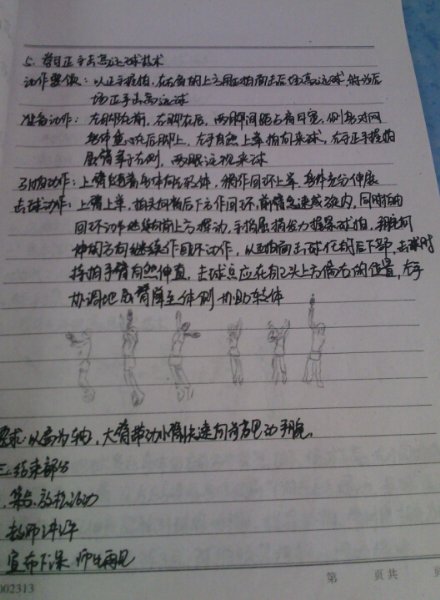 5. 学习正手击高远球技术
动作要领：以正手握拍，在右肩的上方用正拍面击后场高远球，称为后
场正手击高远球
准备动作：左脚在前，右脚在后，两脚间距与肩同宽，侧身对网
身体重心在后脚上，左手自然上举拍向来球，右手正手握拍
屈臂举于右侧，两眼注视来球
引拍动作：上臂随着身体向后，作回环上举，身体充分伸展
击球动作：上臂上举，拍头向背后下方作回环，前臂急速内，同时
回环动作继续向前上方挥动，手指屈指发力握紧球拍，
伸的方向继续作回环动作，以正拍面击球在的后下部，击球时
持拍手臂自然伸直，击球点应在右头上方偏右的位置，左手
协调地屈臂降至体侧协助转体
要求：以肩为轴，大臂带动小臂快速向前方甩动手腕。
三、结束部分
集合、放松活动
教师讲评
宣布下课 师生再见
002313
第 页 共